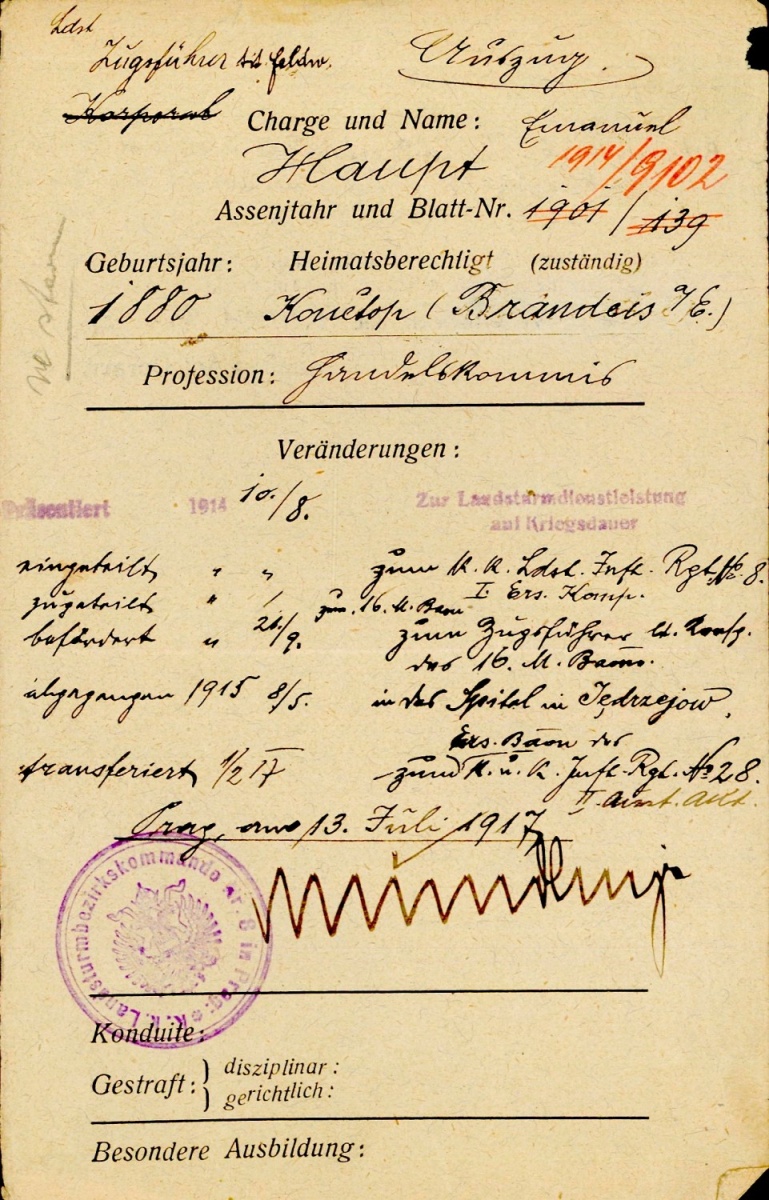 Ldst
Zugsführer tit. Feldw. Auszug.
Korporal Charge und Name: Emanuel
Haupt 1914/9102
Assenjtahr und Blatt-Nr. 1901 / 139
Geburtsjahr: Heimatsberechligt (zuständig)
1880 Konětop (Brandeis a/E.)
Profession: Handelskommis
Veränderungen:
Präsentiert 1914 10./8. Zur Landsturmdienstleistung
auf Kriegsdauer
eingeteilt " " zum K. K. Ldst. Inft. Rgt. No 8.
I. Ers. Komp.
zugeteilt " / zum 16. M. Baon
befördert " 21/9. zum Zugsführer lt. Konsg.
des 16. M. Baons.
abgegangen 1915 8/5. in das Spital in Jędrzejow,
Ers. Baon des
transferiert 1/2 17 zum K. u. K. Inft. Rgt. No 28.
Prag, am 13. Juli 1917
K. K. Landsturmbezirkskommando Nr. 8 in Prag
Konduite:
Gestraft: disziplinar:
gerichtlich:
Besondere Ausbildung: